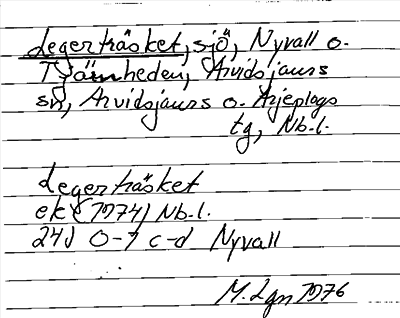 Legerträsket, sjö, Nyvall o.
Tjärnheden, Arvidsjaurs
sn, Arvidsjaurs o. Arjeplogs
tg, Nb.l.
Legerträsket
ek (1974) Nb.l.
24J 0-1 c-d Nyvall
M. Lgn 1976